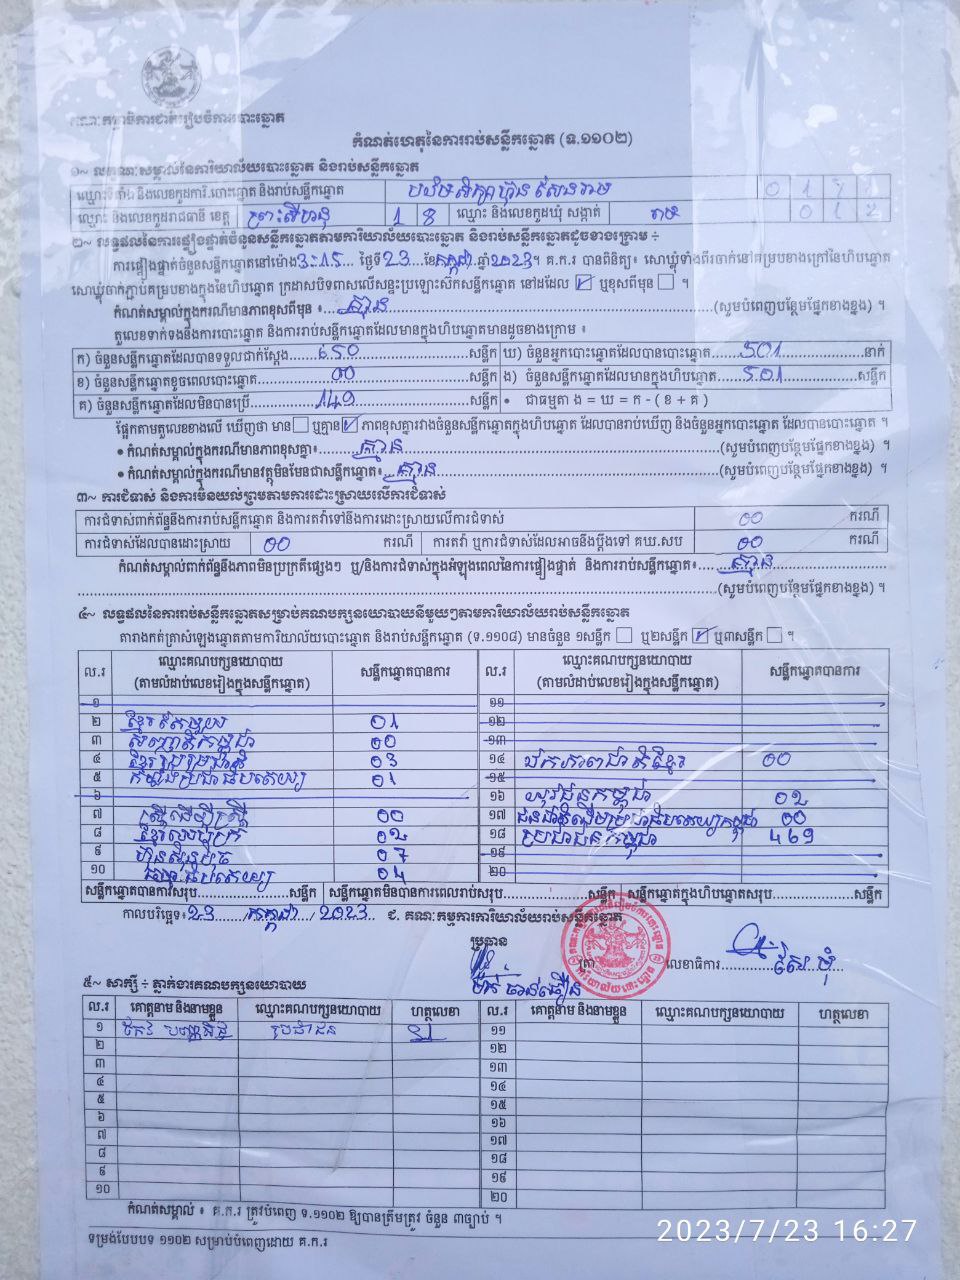 គណៈកម្មាធិការជាតិរៀបចំការបោះឆ្នោត
កំណត់ហេតុនៃការរាប់សន្លឹកឆ្នោត (ទ.១១០២)
១~ លេខសម្គាល់នៃការិយាល័យបោះឆ្នោត និងរាប់សន្លឹកឆ្នោត
ឈ្មោះទីតាំង និងលេខកូដការិ.បោះឆ្នោត និងរាប់សន្លឹកឆ្នោត បឋមសិក្សា ហ៊ុន សែន រាម
ឈ្មោះ និងលេខកូដរាជធានី ខេត្ត ព្រះសីហនុ 1 8 ឈ្មោះ និងលេខកូដឃុំ សង្កាត់ រាម 0 1 2
២~ លទ្ធផលនៃការផ្ទៀងផ្ទាត់ចំនួនសន្លឹកឆ្នោតតាមការិយាល័យបោះឆ្នោត និងរាប់សន្លឹកឆ្នោតដូចខាងក្រោម ÷
ការផ្ទៀងផ្ទាត់ចំនួនសន្លឹកឆ្នោតនៅម៉ោង 3:15 ថ្ងៃទី 23 ខែ កក្កដា ឆ្នាំ 2023។ គ.ក.រ បានពិនិត្យ៖ សោឃ្មុំទាំងពីរចាក់នៅគម្របខាងក្រៅនៃហិបឆ្នោត
សោឃ្មុំចាក់ភ្ជាប់គម្របខាងក្នុងនៃហិបឆ្នោត ក្រដាសបិទពាសលើសន្ទះប្រឡោះសឹកសន្លឹកឆ្នោត នៅដដែល ☑ ឬខុសពីមុន ☐ ។
កំណត់សម្គាល់ក្នុងករណីមានភាពខុសពីមុន ៖ គ្មាន (សូមបំពេញបន្ថែមផ្នែកខាងខ្នង) ។
តួលេខទាក់ទងនឹងការបោះឆ្នោត និងការរាប់សន្លឹកឆ្នោតដែលមានក្នុងហិបឆ្នោតមានដូចខាងក្រោម ៖
ក) ចំនួនសន្លឹកឆ្នោតដែលបានទទួលជាក់ស្តែង 650 សន្លឹក ឃ) ចំនួនអ្នកបោះឆ្នោតដែលបានបោះឆ្នោត 501 នាក់
ខ) ចំនួនសន្លឹកឆ្នោតខូចពេលបោះឆ្នោត 00 សន្លឹក ង) ចំនួនសន្លឹកឆ្នោតដែលមានក្នុងហិបឆ្នោត 501 សន្លឹក
គ) ចំនួនសន្លឹកឆ្នោតដែលមិនបានប្រើ 149 សន្លឹក • ជាធម្មតា ង = ឃ = ក - ( ខ + គ )
ផ្អែកតាមតួលេខខាងលើ ឃើញថា មាន ☐ ឬគ្មាន ☑ ភាពខុសគ្នារវាងចំនួនសន្លឹកឆ្នោតក្នុងហិបឆ្នោត ដែលបានរាប់ឃើញ និងចំនួនអ្នកបោះឆ្នោត ដែលបានបោះឆ្នោត ។
• កំណត់សម្គាល់ក្នុងករណីមានភាពខុសគ្នា៖ គ្មាន (សូមបំពេញបន្ថែមផ្នែកខាងខ្នង) ។
• កំណត់សម្គាល់ក្នុងករណីមានវត្ថុមិនមែនជាសន្លឹកឆ្នោត៖ គ្មាន (សូមបំពេញបន្ថែមផ្នែកខាងខ្នង) ។
៣~ ការជំទាស់ និងការមិនយល់ព្រមតាមការដោះស្រាយលើការជំទាស់
ការជំទាស់ពាក់ព័ន្ធនឹងការរាប់សន្លឹកឆ្នោត និងការតវ៉ាទៅនឹងការដោះស្រាយលើការជំទាស់ 00 ករណី
ការជំទាស់ដែលបានដោះស្រាយ 00 ករណី ការតវ៉ា ឬការជំទាស់ដែលអាចនឹងប្តឹងទៅ គឃ.សប 00 ករណី
កំណត់សម្គាល់ពាក់ព័ន្ធនឹងភាពមិនប្រក្រតីផ្សេងៗ ឬ/និងការជំទាស់ក្នុងអំឡុងពេលនៃការផ្ទៀងផ្ទាត់ និងការរាប់សន្លឹកឆ្នោត៖ គ្មាន
(សូមបំពេញបន្ថែមផ្នែកខាងខ្នង) ។
៤~ លទ្ធផលនៃការរាប់សន្លឹកឆ្នោតសម្រាប់គណបក្សនយោបាយនីមួយៗតាមការិយាល័យរាប់សន្លឹកឆ្នោត
តារាងកត់ត្រាសំឡេងឆ្នោតតាមការិយាល័យបោះឆ្នោត និងរាប់សន្លឹកឆ្នោត (ទ.១១០៨) មានចំនួន ១សន្លឹក ☐ ឬ២សន្លឹក ☑ ឬ៣សន្លឹក ☐ ។
ល.រ ឈ្មោះគណបក្សនយោបាយ (តាមលំដាប់លេខរៀងក្នុងសន្លឹកឆ្នោត) សន្លឹកឆ្នោតបានការ ល.រ ឈ្មោះគណបក្សនយោបាយ (តាមលំដាប់លេខរៀងក្នុងសន្លឹកឆ្នោត) សន្លឹកឆ្នោតបានការ
១ ១១
២ ខ្មែរតែមួយ 01 ១២
៣ សញ្ជាតិកម្ពុជា 00 ១៣
៤ ខ្មែររួបរួមជាតិ 03 ១៤ ឯកភាពជាតិខ្មែរ 00
៥ កម្លាំងប្រជាធិបតេយ្យ 01 ១៥
៦ ១៦ យុវជនកម្ពុជា 02
៧ ស្ត្រីដើម្បីស្ត្រី 00 ១៧ ជនជាតិដើមប្រជាធិបតេយ្យកម្ពុជា 00
៨ ខ្មែរឈប់ក្រ 02 ១៨ ប្រជាជនកម្ពុជា 469
៩ ហ៊្វុនស៊ិនប៉ិច 07 ១៩
១០ ធម្មាធិបតេយ្យ 04 ២០
សន្លឹកឆ្នោតបានការសរុប សន្លឹក សន្លឹកឆ្នោតមិនបានការពេលរាប់សរុប សន្លឹក សន្លឹកឆ្នោតក្នុងហិបឆ្នោតសរុប សន្លឹក
កាលបរិច្ឆេទ៖ 23 / កក្កដា / 2023 ជ. គណៈកម្មការការិយាល័យរាប់សន្លឹកឆ្នោត
ប្រធាន
លេខាធិការ
៥~ សាក្សី ÷ ភ្នាក់ងារគណបក្សនយោបាយ
ល.រ គោត្តនាម និងនាមខ្លួន ឈ្មោះគណបក្សនយោបាយ ហត្ថលេខា ល.រ គោត្តនាម និងនាមខ្លួន ឈ្មោះគណបក្សនយោបាយ ហត្ថលេខា
១ ប្រជាជន ១១
២ ១២
៣ ១៣
៤ ១៤
៥ ១៥
៦ ១៦
៧ ១៧
៨ ១៨
៩ ១៩
១០ ២០
កំណត់សម្គាល់ ៖ គ.ក.រ ត្រូវបំពេញ ទ.១១០២ ឱ្យបានត្រឹមត្រូវ ចំនួន ៣ច្បាប់ ។
ទម្រង់បែបបទ ១១០២ សម្រាប់បំពេញដោយ គ.ក.រ
2023/7/23 16:27